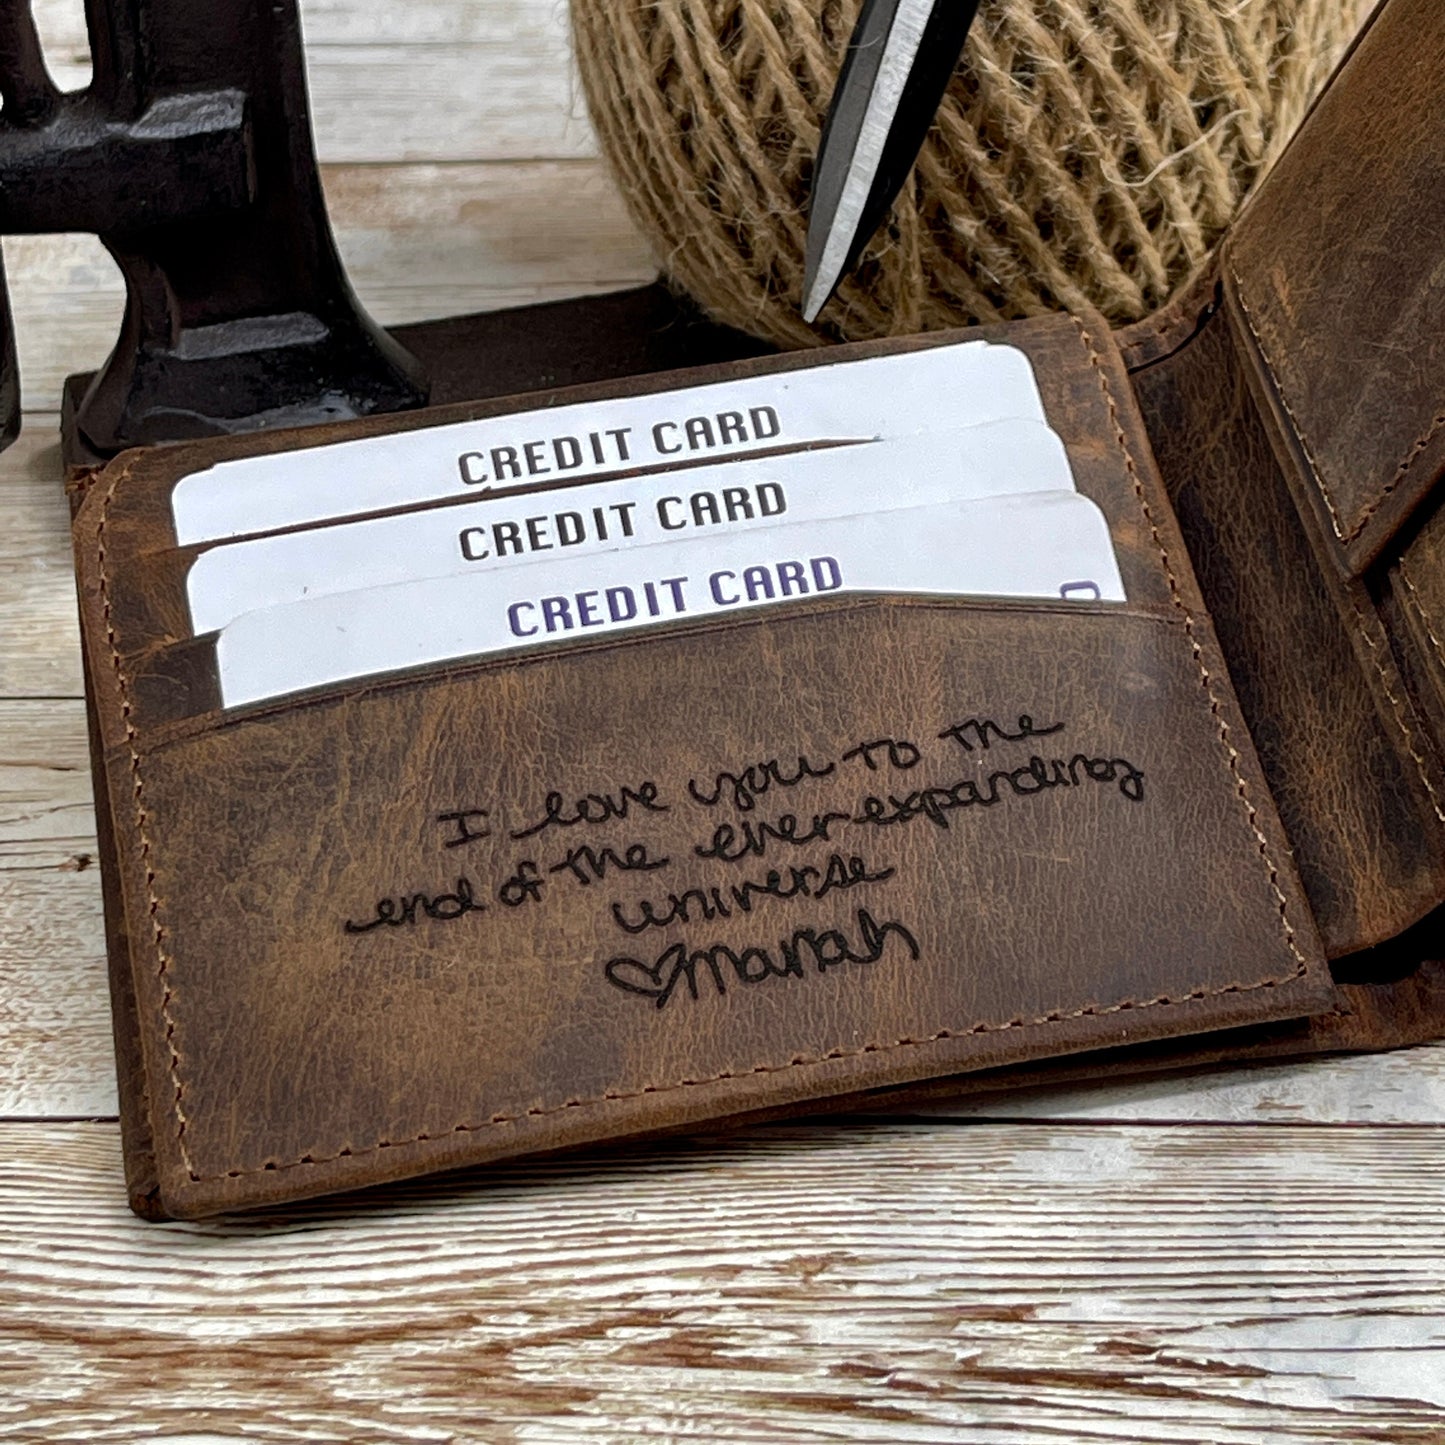 CREDIT CARD
CREDIT CARD
CREDIT CARD
I love you to the
end of the ever expanding
universe
♡Mariah